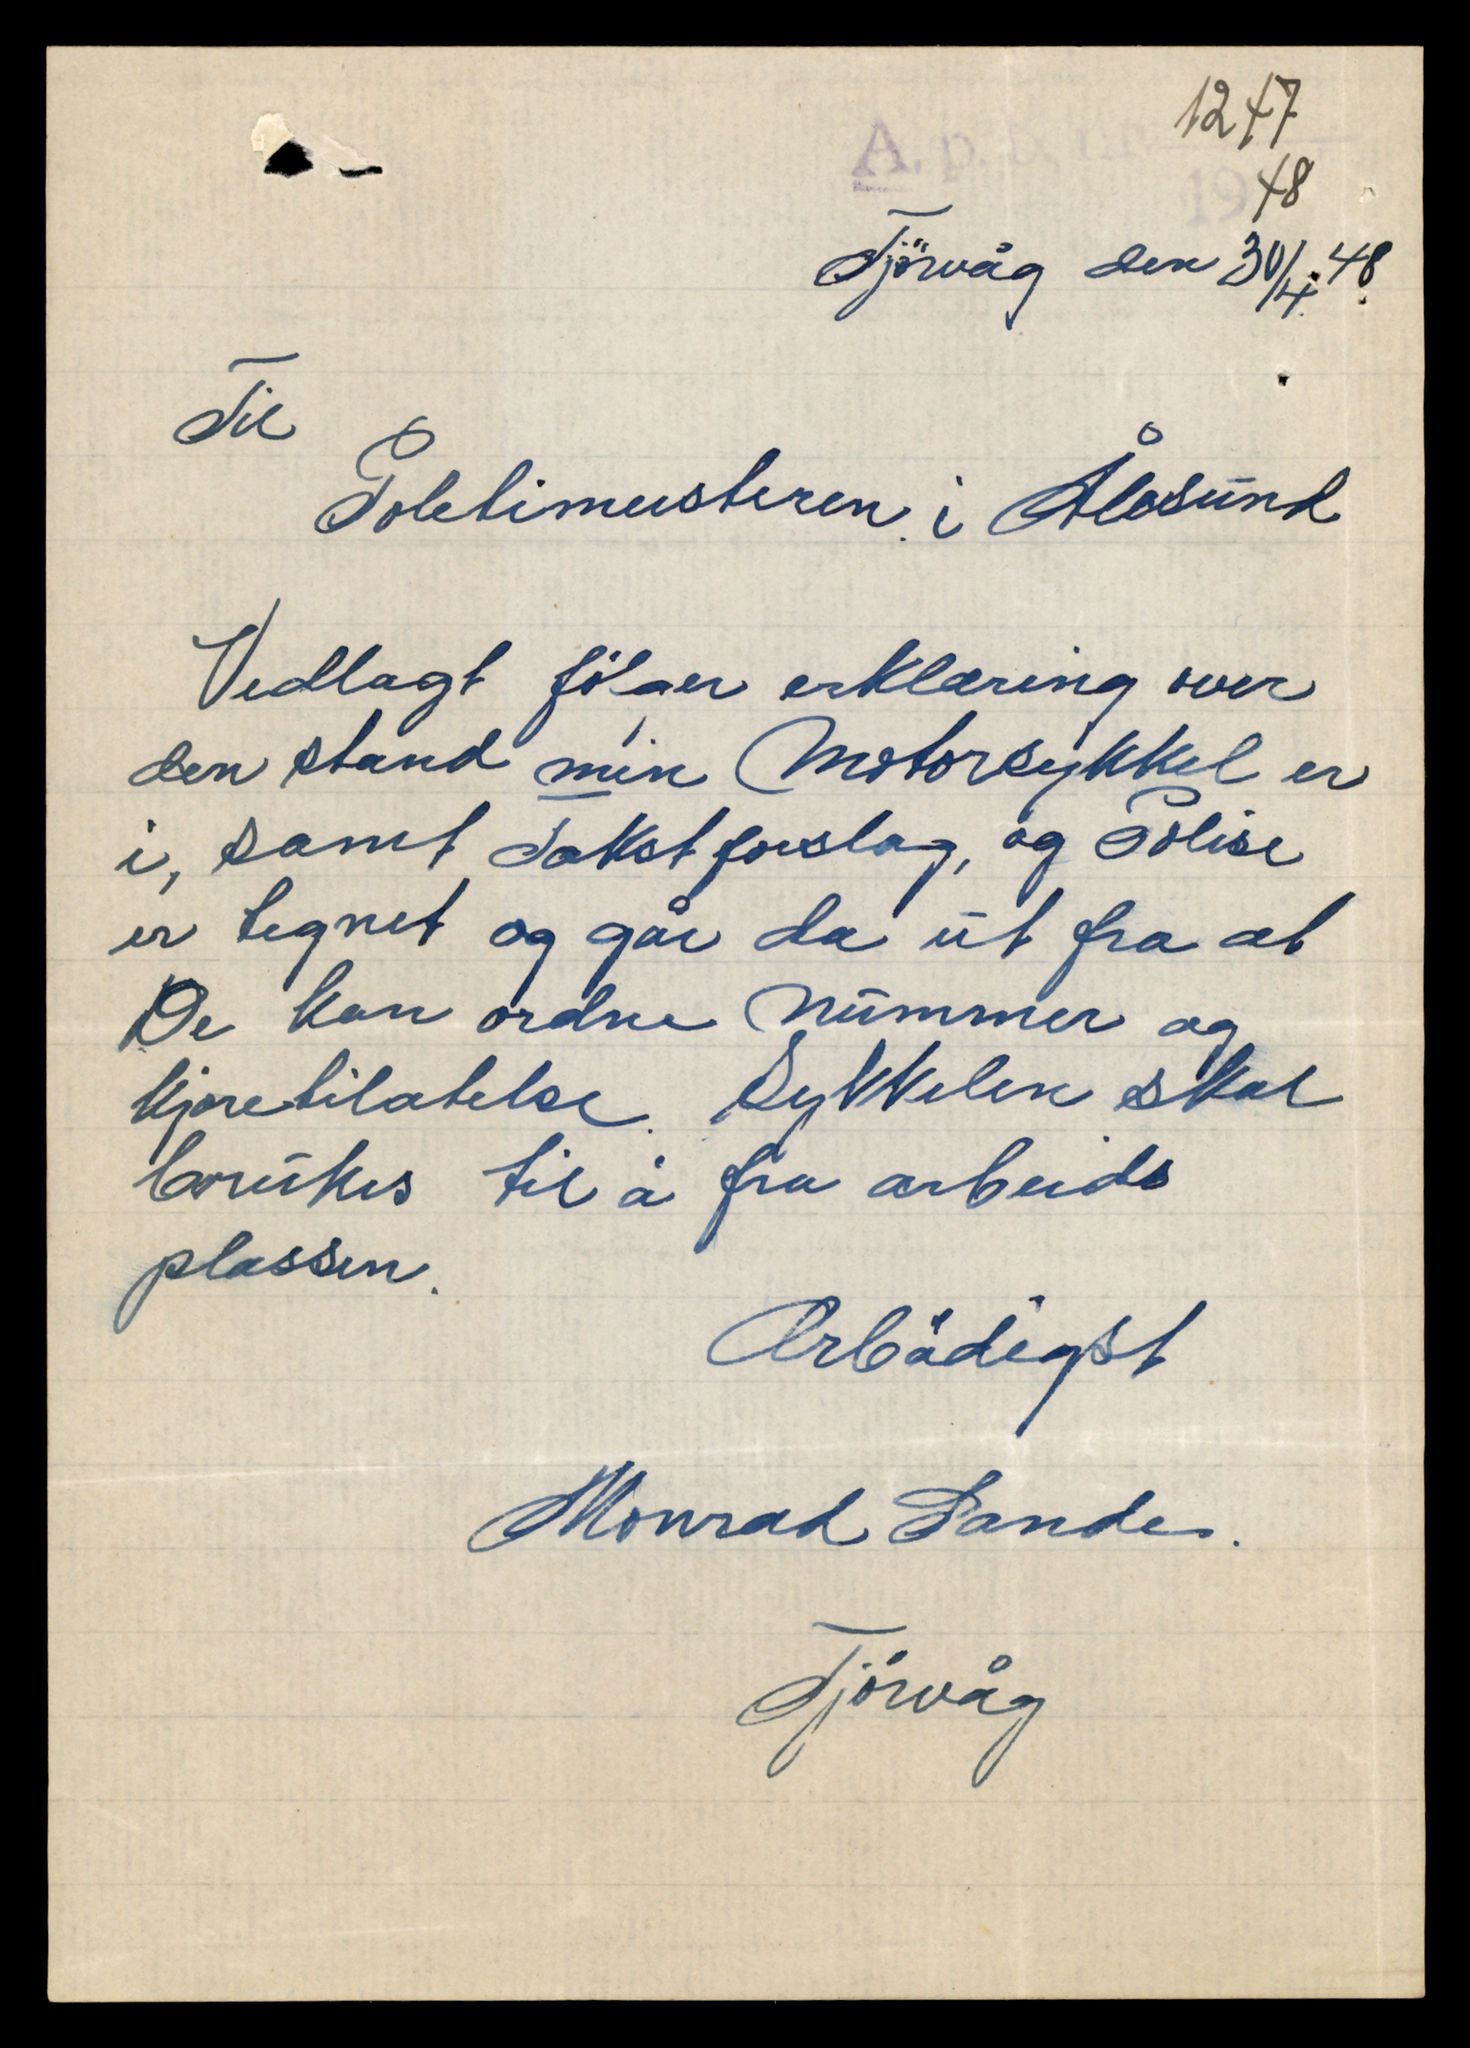 1247
A. p. D. nr.
1948
Tjörvåg den 30/4. 48.
Til
Poletimesteren i Ålesund
Vedlagt följer erklæring over
den stand min Motorsykkel er
i, samt Takst forslag, og Polise
er tegnet og går da ut fra at
De kan ordne Nummer og
kjoretilatelse. Sykkelen skal
brukes til å fra arbeids
plassen.
Ärbödigst
Monrad Sande.
Tjörvåg